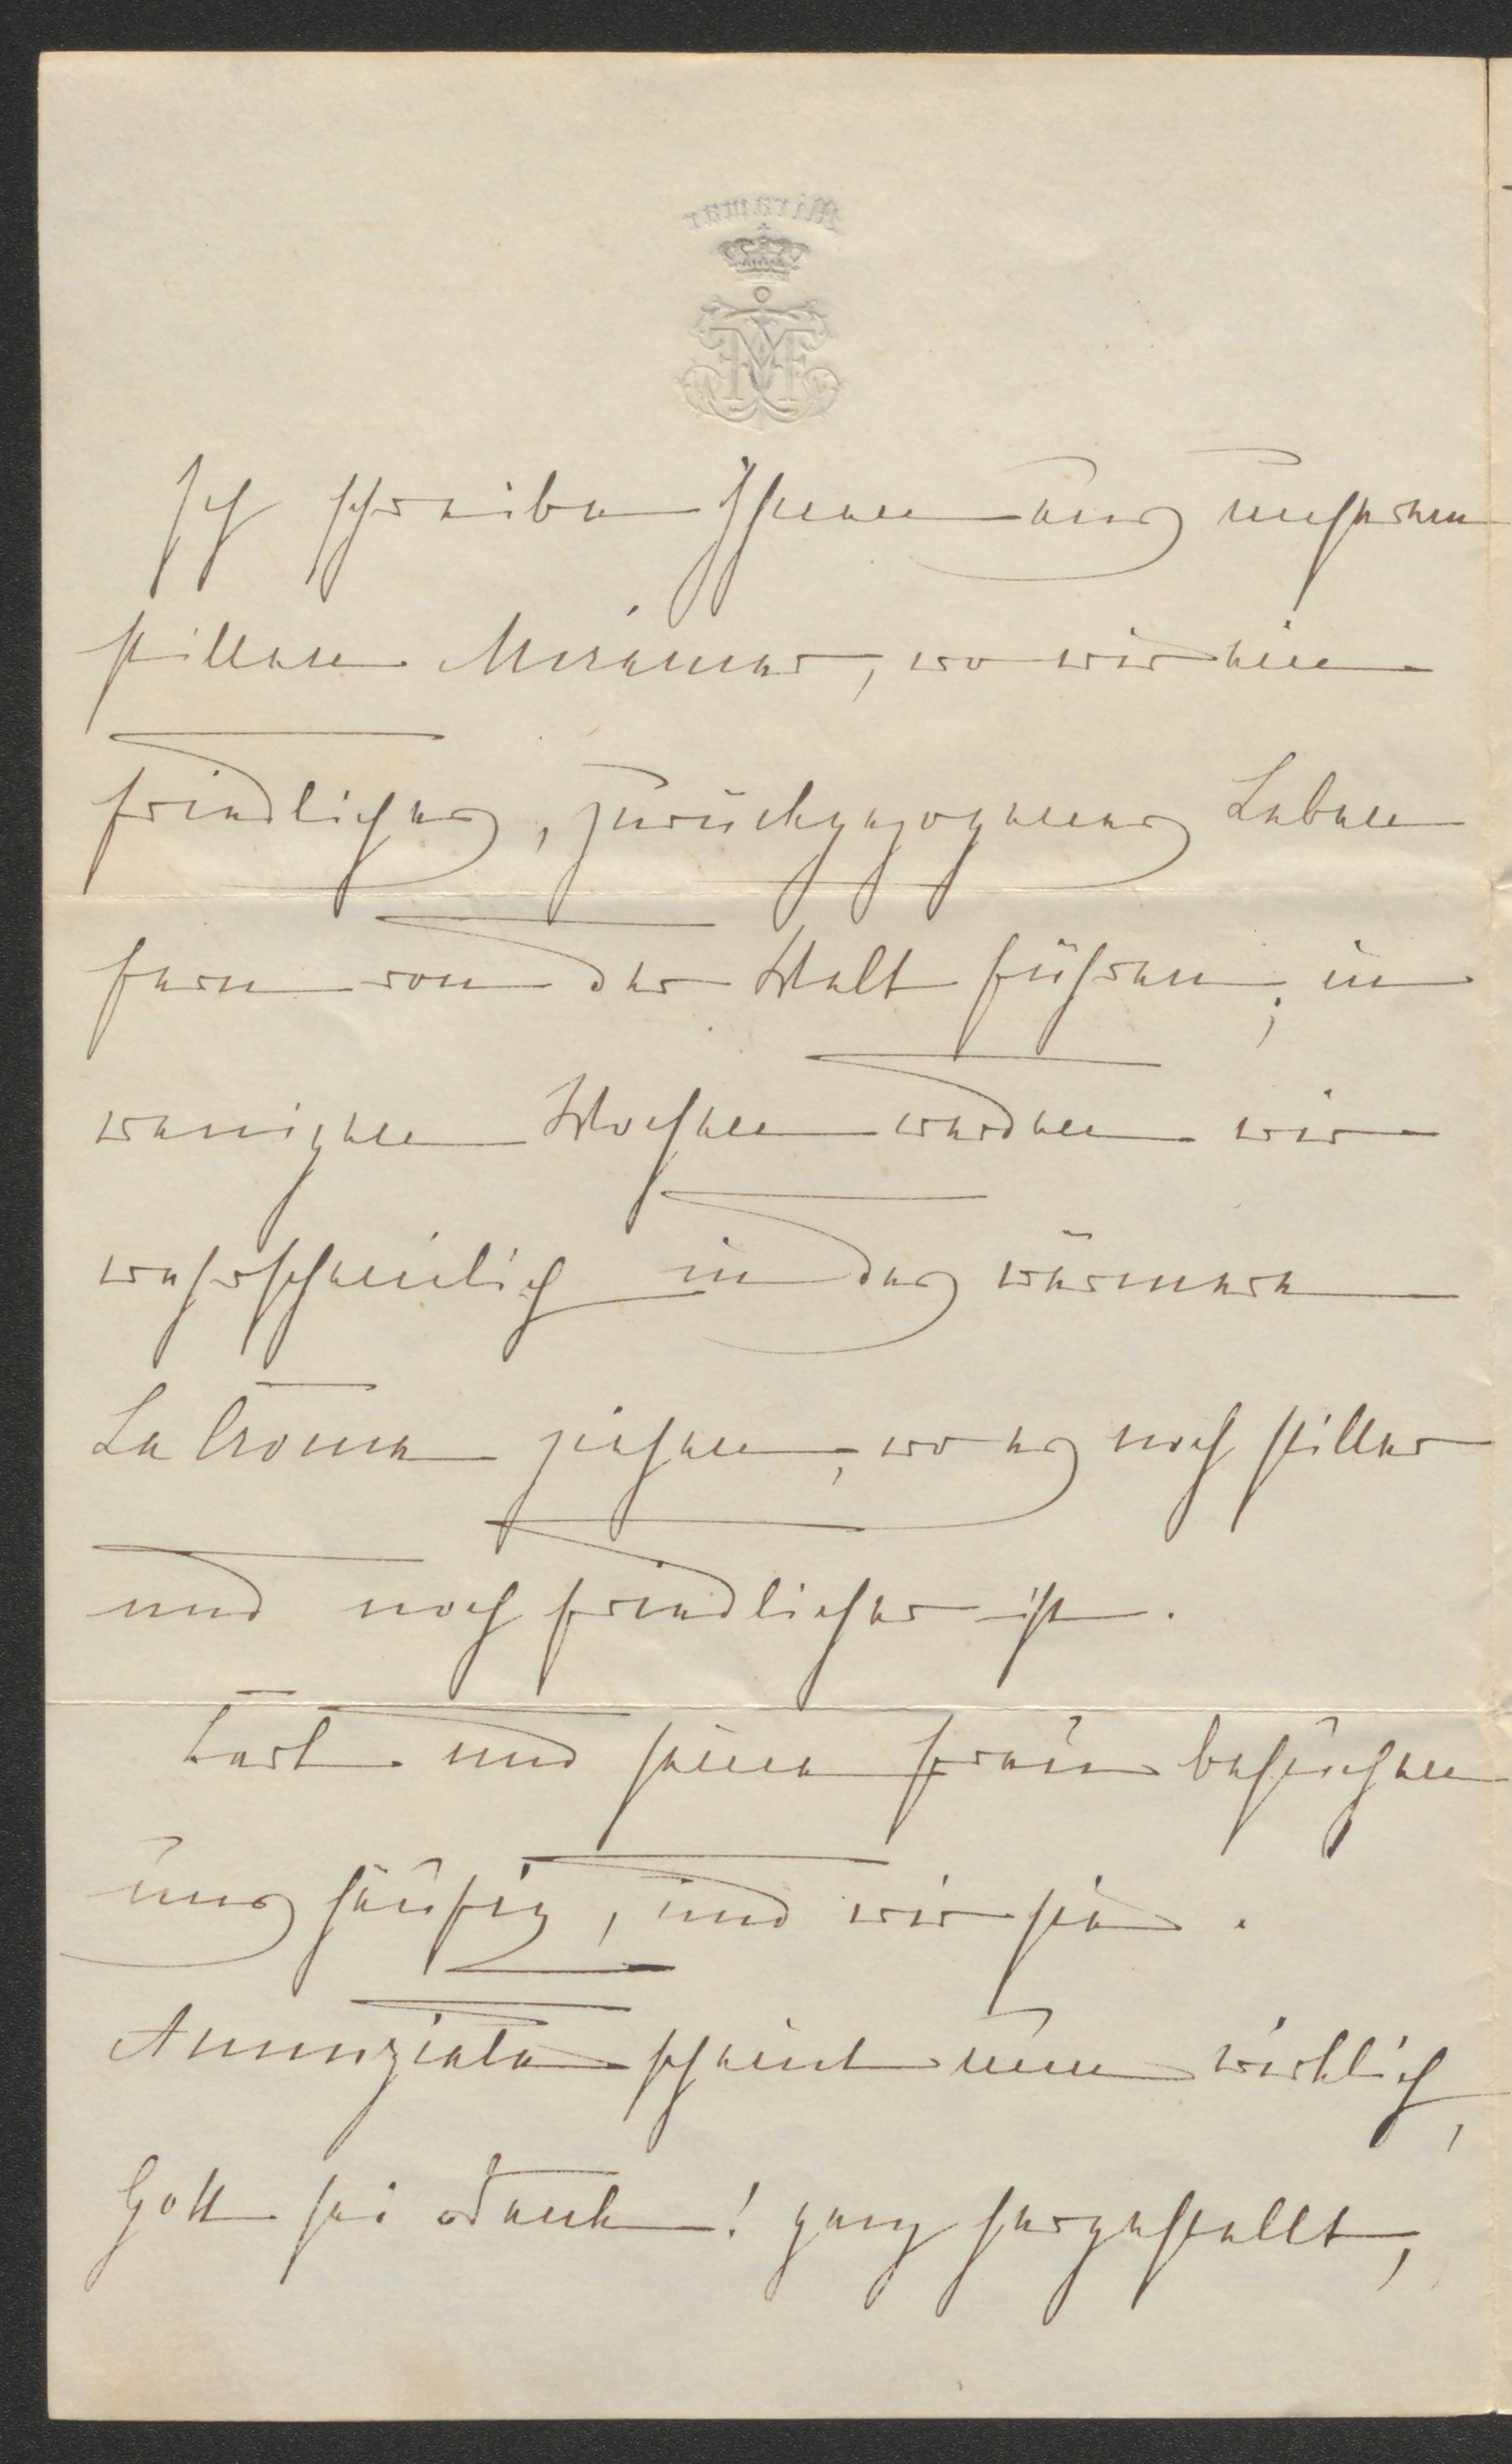 Miramar
Ich schreibe Ihnen aus unserem
stillen Miramar, wo wir ein
friedliches, zurückgezogenes Leben
fern von der Welt führen; in
wenigen Wochen werden wir
wahrscheinlich in das wärmere
La Croma ziehen, wo es noch stiller
und noch friedlicher ist.
Karl und seine Frau besuchen
uns häufig, und wir sie.
Annunziata scheint nun wirklich,
Gott sei Dank! ganz hergestellt,